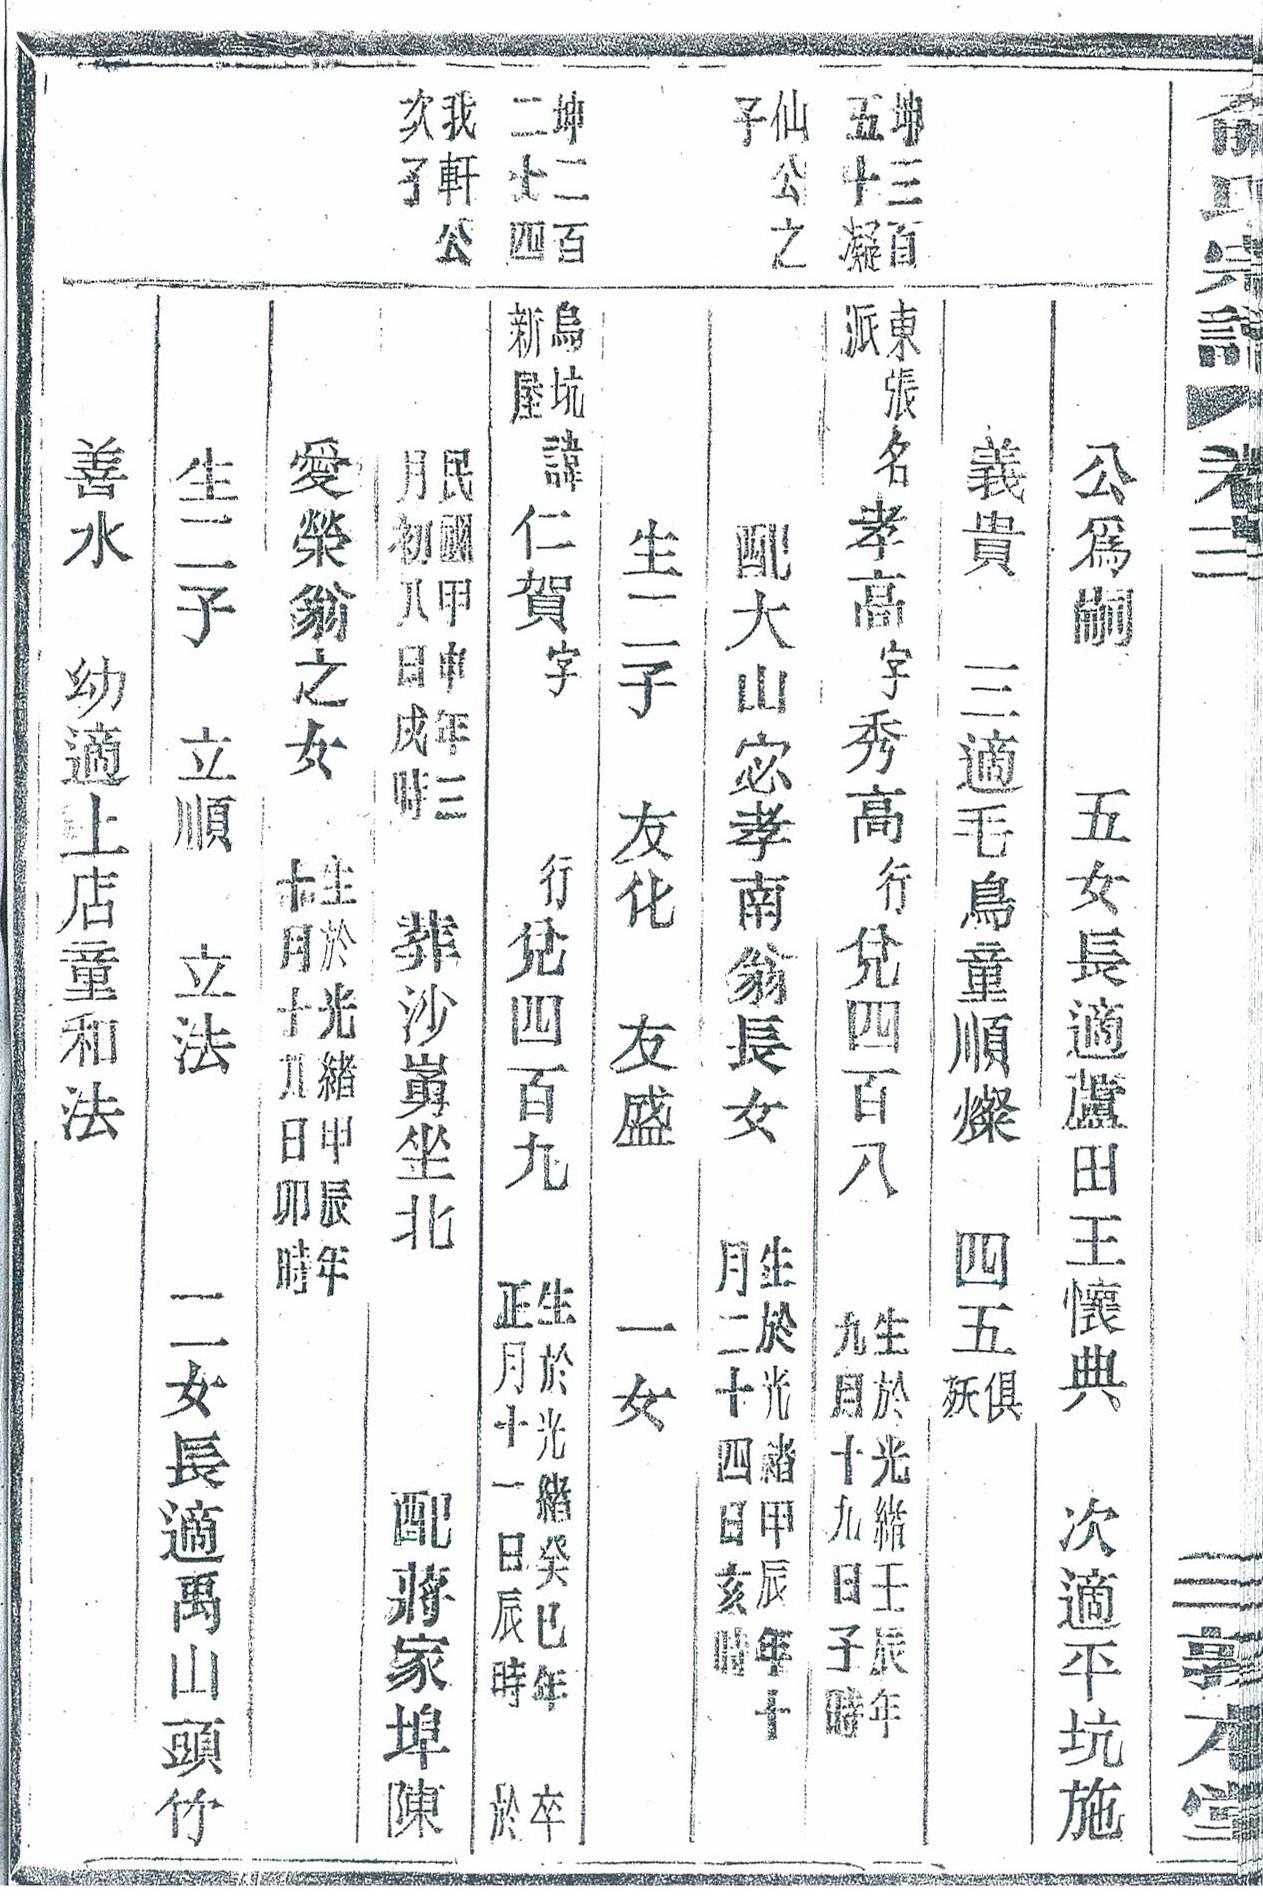 俞氏宗譜 卷三
敦本堂
公爲嗣 五女長適蘆田王懷典 次適平坑施
義貴 三適毛鳥童順燦 四五俱殀
坤三百五十凝
仙公之子
東張派
名孝高字秀高 行兌四百八 生於光緒壬辰年九月十九日子時
配大山宓孝南翁長女 生於光緒甲辰年十月二十四日亥時
生二子 友化 友盛 一女
坤二百二十四
我軒公次子
烏坑新屋
諱仁賀字 行兌四百九 生於光緒癸巳年正月十一日辰時 卒於
民國甲申年三月初八日戌時 葬沙 坐北 配蔣家埠陳
愛榮翁之女 生於光緒甲辰年十月十八日卯時
生二子 立順 立法 二女長適禹山頭竹
善水 幼適上店童和法